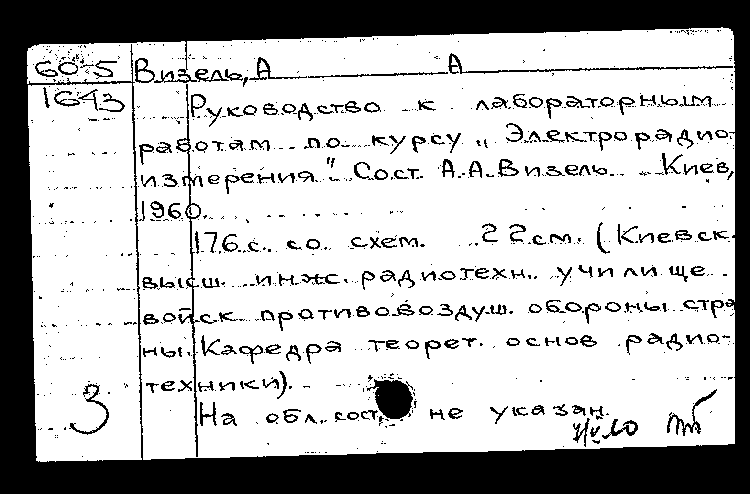 60-5 Визель, А А
1643 Руководство к лабораторным
работам по курсу „Электрорадио-
измерения" Сост. А.А.Визель. Киев,
1960.
176 с. со схем. 22 см. (Киевск.
высш. инж. радиотехн. училище
войск противовоздуш. обороны стра
ны. Кафедра теорет. основ радио-
техники).
3 На обл. сост. не указан.